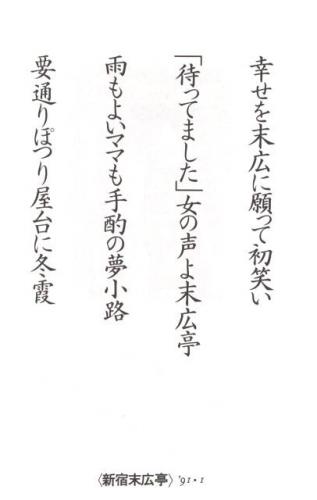 幸せを末広に願って初笑い
「待ってました」女の声よ末広亭
雨もよいママも手酌の夢小路
要通りぽつり屋台に冬霞
〈新宿末広亭〉'91・1